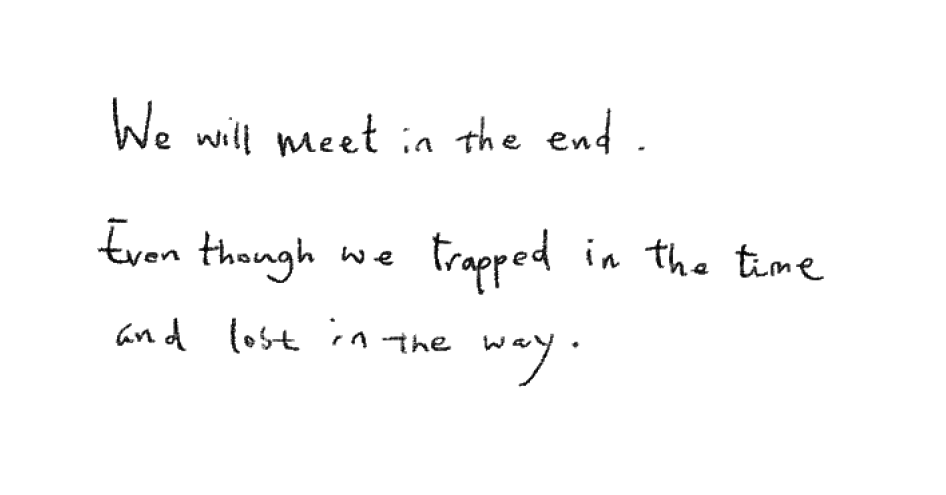 We will meet in the end.
Even though we trapped in the time
and lost in the way.